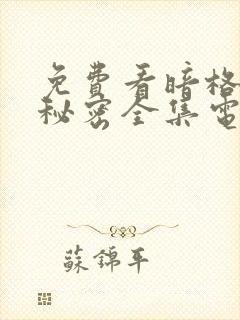 免費看暗格
秘密全集電
蘇錦平